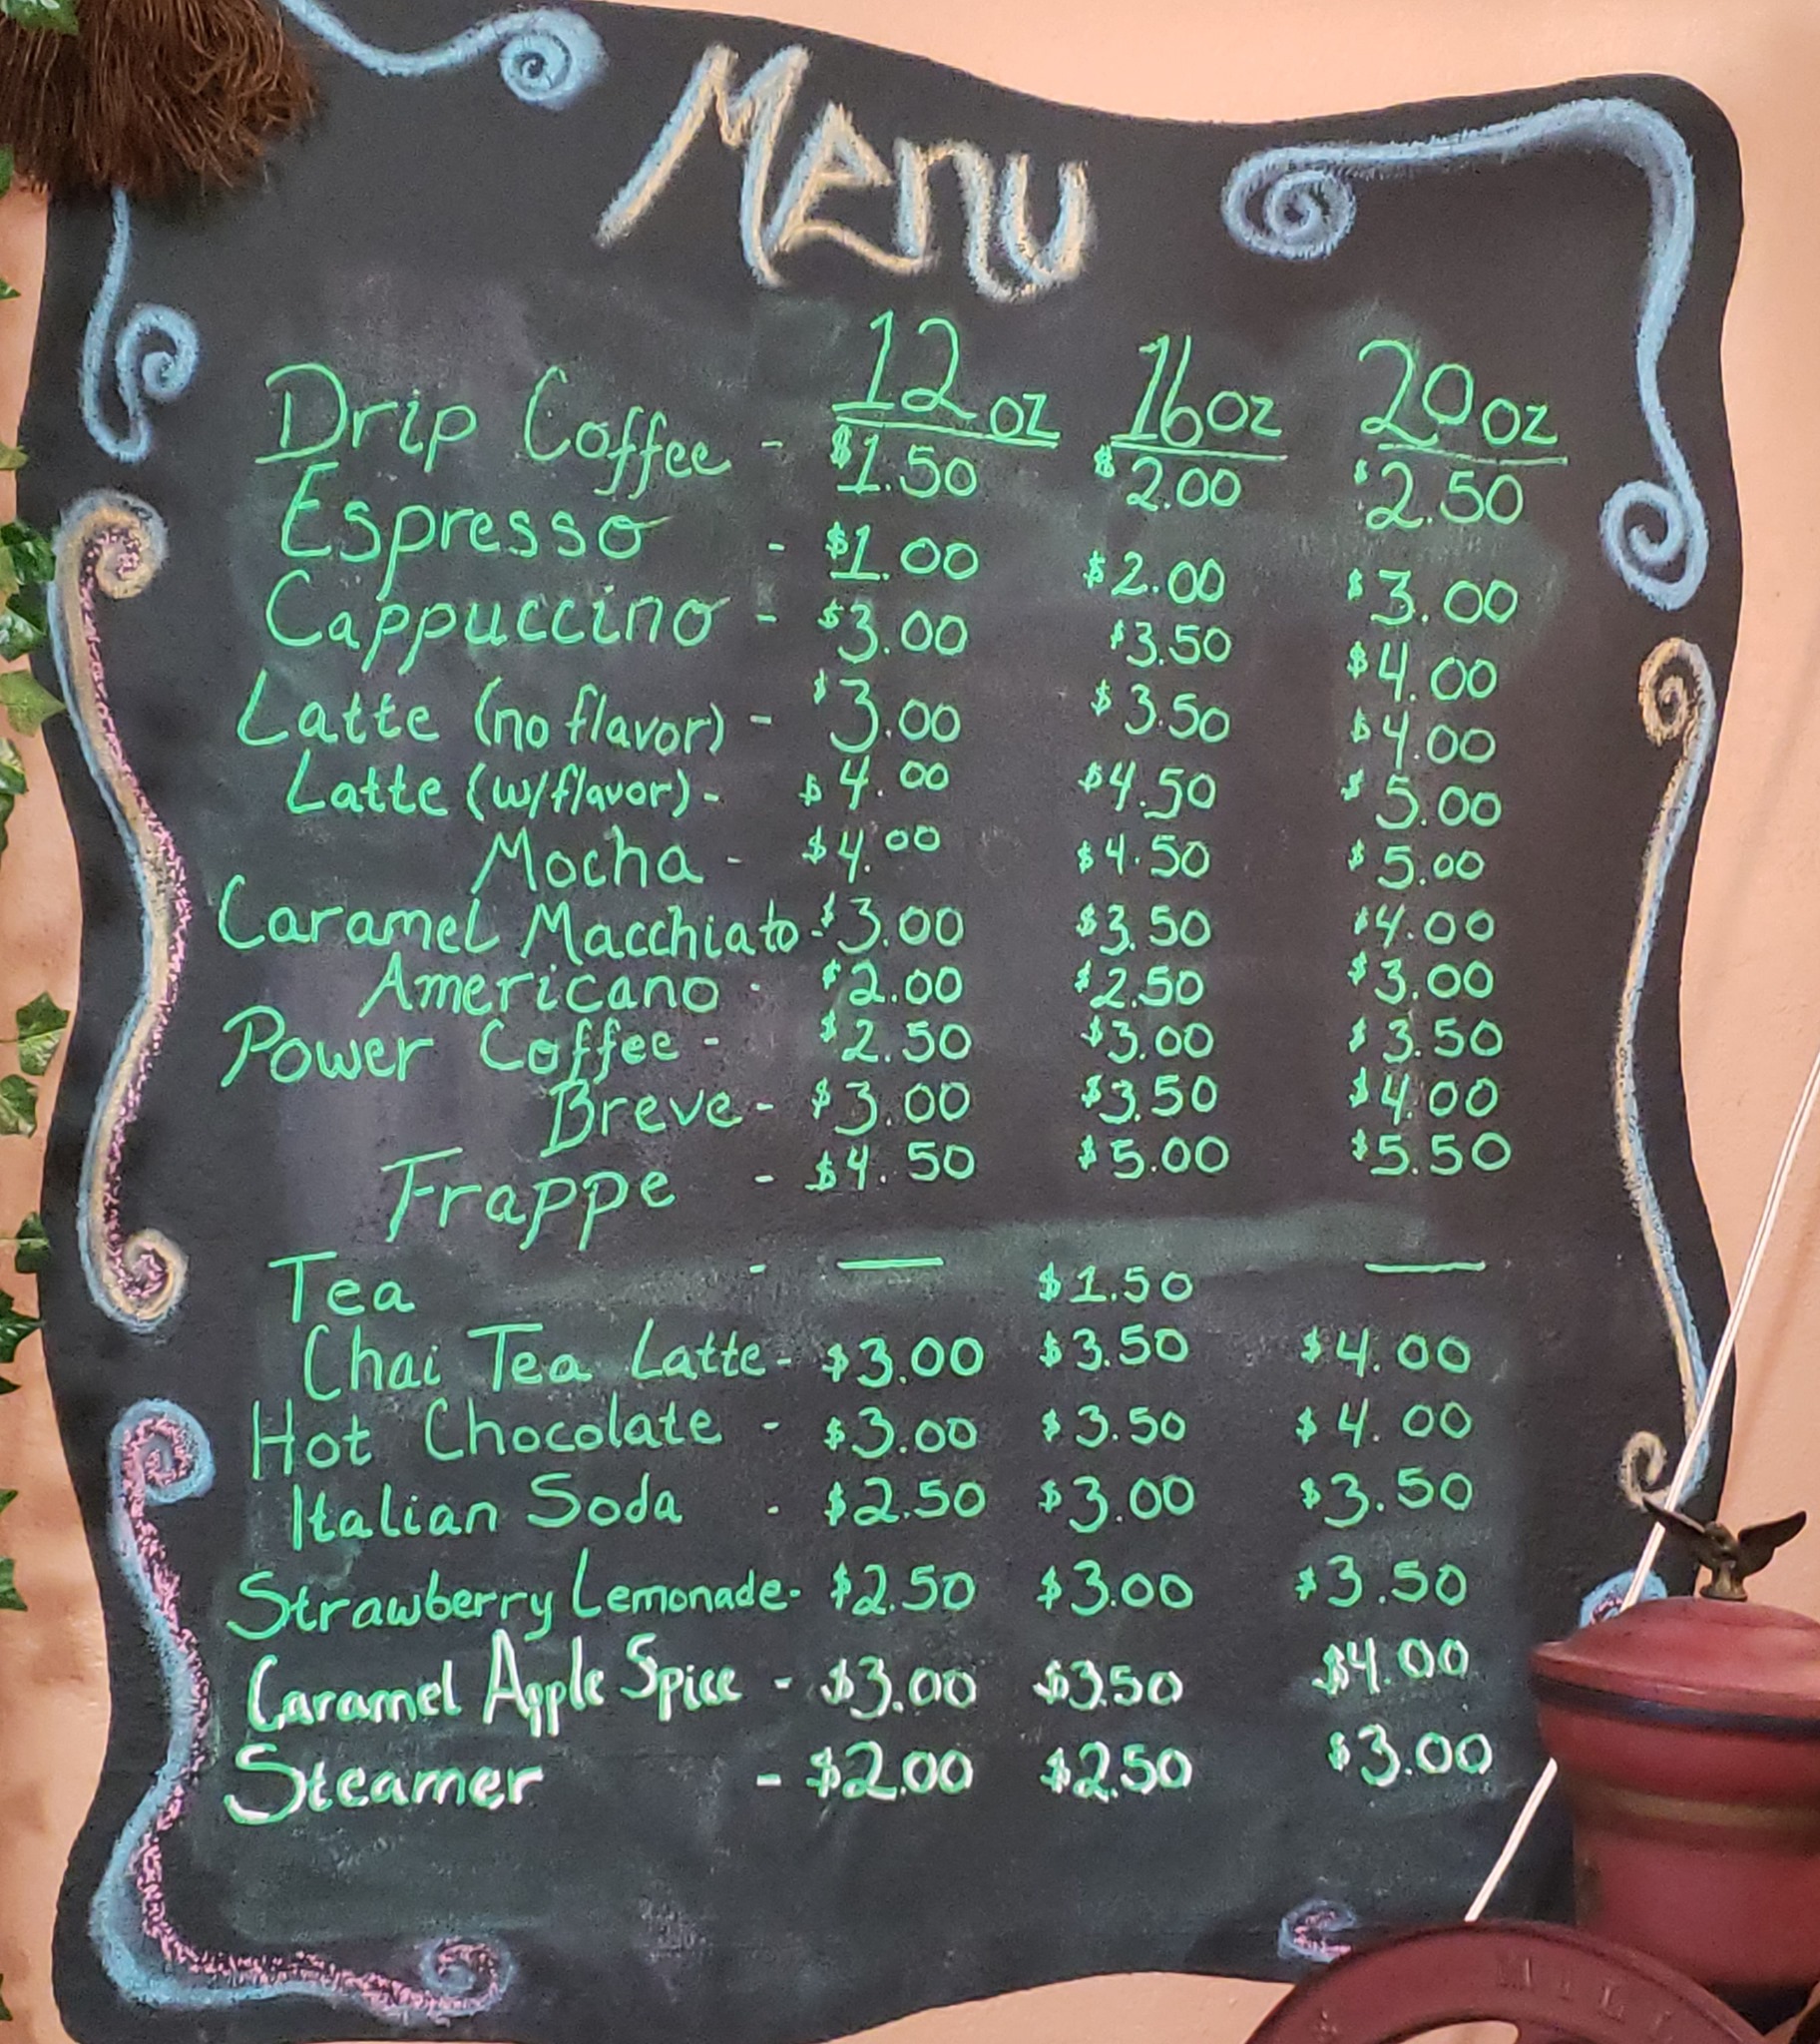 Menu
12oz 16oz 20oz
Drip Coffee - $1.50 $2.00 $2.50
Espresso - $1.00 $2.00 $3.00
Cappuccino - $3.00 $3.50 $4.00
Latte (no flavor) - $3.00 $3.50 $4.00
Latte (w/flavor) - $4.00 $4.50 $5.00
Mocha - $4.00 $4.50 $5.00
Caramel Macchiato - $3.00 $3.50 $4.00
Americano - $2.00 $2.50 $3.00
Power Coffee - $2.50 $3.00 $3.50
Breve - $3.00 $3.50 $4.00
Frappe - $4.50 $5.00 $5.50
Tea - — $1.50 —
Chai Tea Latte - $3.00 $3.50 $4.00
Hot Chocolate - $3.00 $3.50 $4.00
Italian Soda - $2.50 $3.00 $3.50
Strawberry Lemonade - $2.50 $3.00 $3.50
Caramel Apple Spice - $3.00 $3.50 $4.00
Steamer - $2.00 $2.50 $3.00